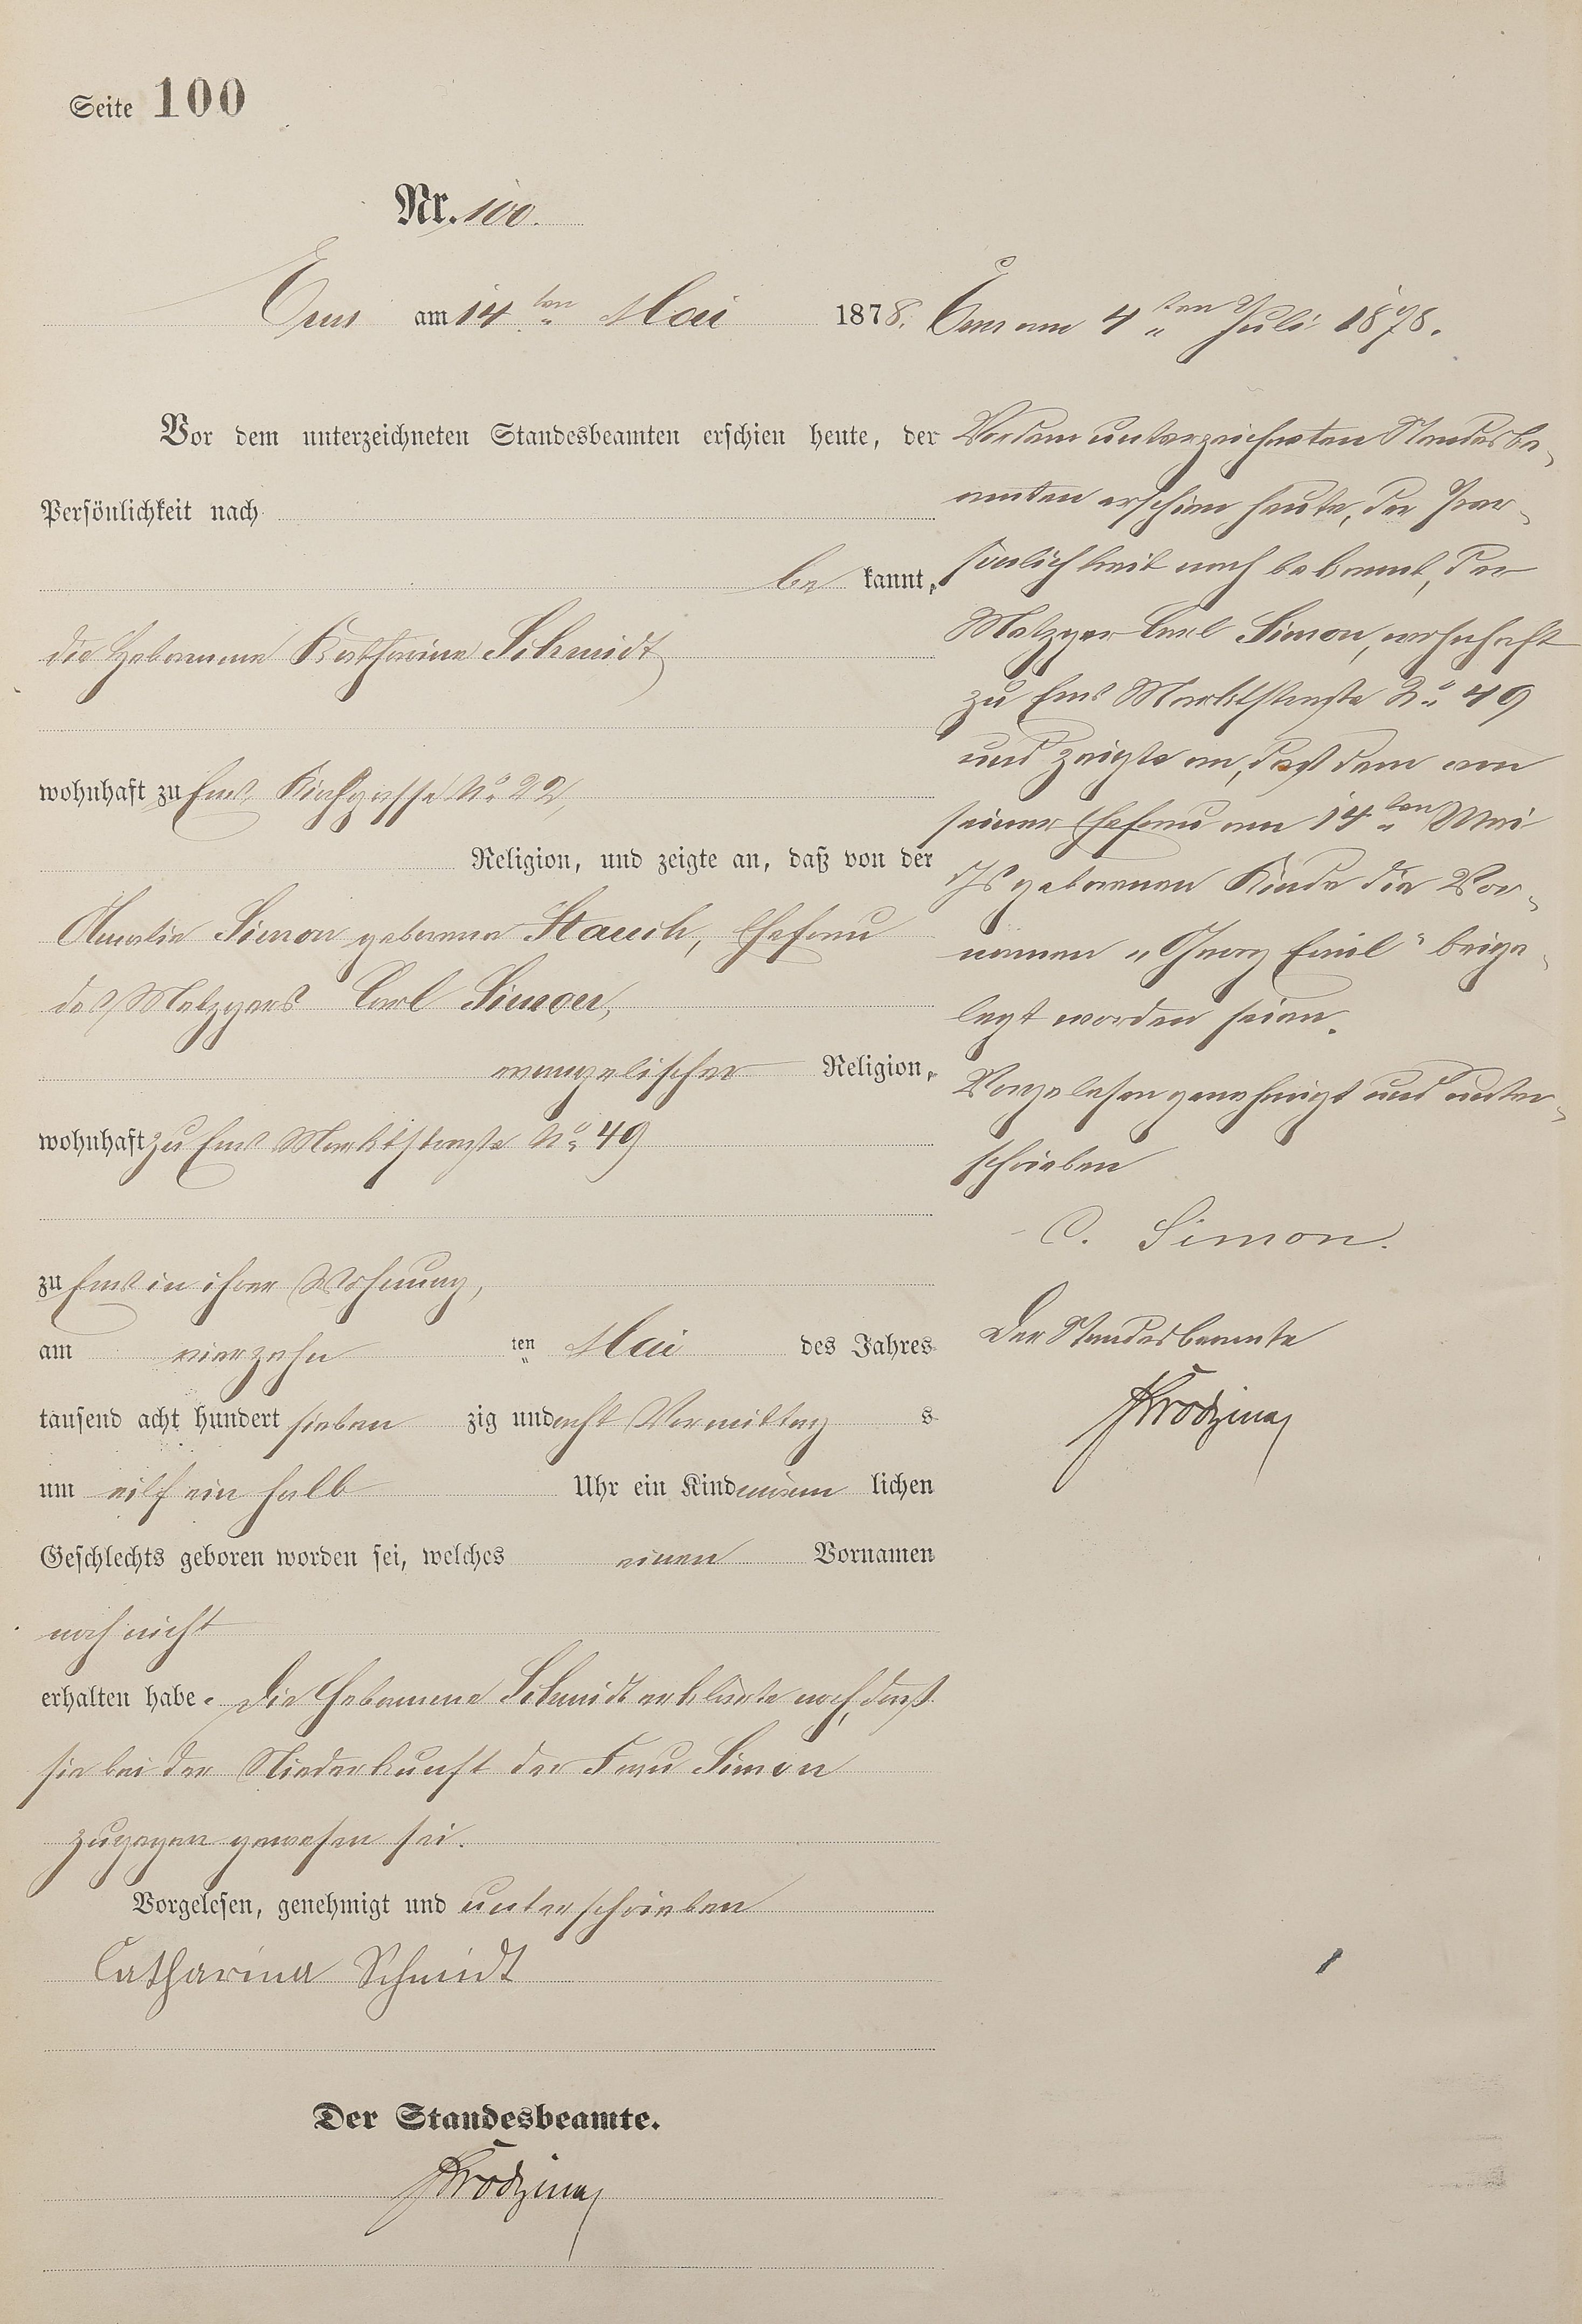 Seite 100
Nr. 100.
Ems am 14ten Mai 1878.
Vor dem unterzeichneten Standesbeamten erschien heute, der
Persönlichkeit nach
be kannt,
die Hebamme Katharina Schmidt
wohnhaft zu Ems, Kirchgasse No 22,
Religion, und zeigte an, daß von der
Amalie Simon geborene Stauch, Ehefrau
des Metzgers Carl Simon,
evangelischer Religion,
wohnhaft zu Ems Marktstraße No 49
zu Ems in ihrer Wohnung,
am vierzehn ten Mai des Jahres
tausend acht hundert sieben zig und acht Vormittag s
um eilf ein halb Uhr ein Kind männ lichen
Geschlechts geboren worden sei, welches einen Vornamen
noch nicht
erhalten habe. Die Hebamme Schmidt erklärte noch, daß
sie bei der Niederkunft der Frau Simon
zugegen gewesen sei.
Vorgelesen, genehmigt und unterschrieben
Catharina Schmidt
Der Standesbeamte.
Ems am 4ten Juli 1878.
Vor dem unterzeichneten Standesbe-
amten erschien heute, der Per-
sönlichkeit nach bekannt, der
Metzger Carl Simon, wohnhaft
zu Ems Marktstraße No 49
und zeigte an, daß dem von
seiner Ehefrau am 14ten Mai
d/Js geborenen Kinde die Vor-
namen „Georg Emil“ beige-
legt worden seien.
Vorgelesen genehmigt und unter-
schrieben
C. Simon.
Der Standesbeamte